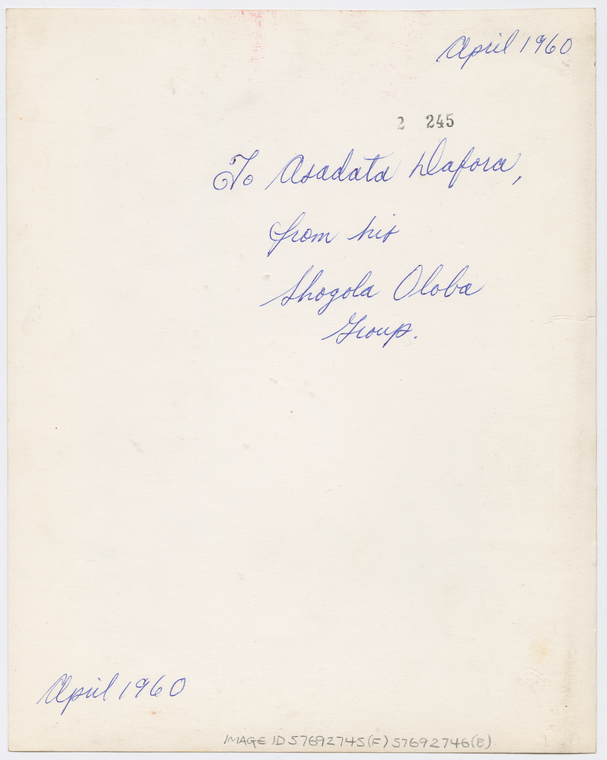 April 1960
2 245
To Asadata Dafora,
from his
Shogola Oloba
Group.
April 1960
IMAGE ID 57692745(F) 57692746(B)